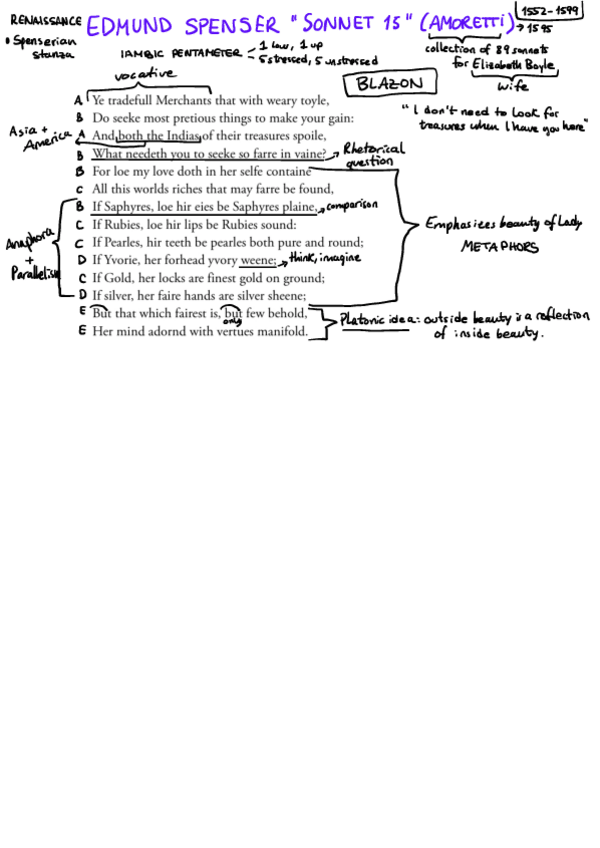 RENAISSANCE EDMUND SPENSER "SONNET 15" (AMORETTI) 1552-1599
→ 1595
• Spenserian stanza
IAMBIC PENTAMETER - 1 low, 1 up
- 5 stressed, 5 unstressed
collection of 89 sonnets
for Elizabeth Boyle
wife
vocative
BLAZON
A Ye tradefull Merchants that with weary toyle,
B Do seeke most pretious things to make your gain:
A And both the Indias of their treasures spoile,
B What needeth you to seeke so farre in vaine?
B For loe my love doth in her selfe containe
C All this worlds riches that may farre be found,
B If Saphyres, loe hir eies be Saphyres plaine,
C If Rubies, loe hir lips be Rubies sound:
C If Pearles, hir teeth be pearles both pure and round;
D If Yvorie, her forhead yvory weene;
C If Gold, her locks are finest gold on ground;
D If silver, her faire hands are silver sheene;
E But that which fairest is, but few behold,
only
E Her mind adornd with vertues manifold.
Asia +
America
Anaphora
+
Parallelism
"I don't need to look for
treasures when I have you here"
→ Rhetorical
question
→ comparison
→ think, imagine
Emphasizes beauty of Lady
METAPHORS
Platonic idea: outside beauty is a reflection
of inside beauty.